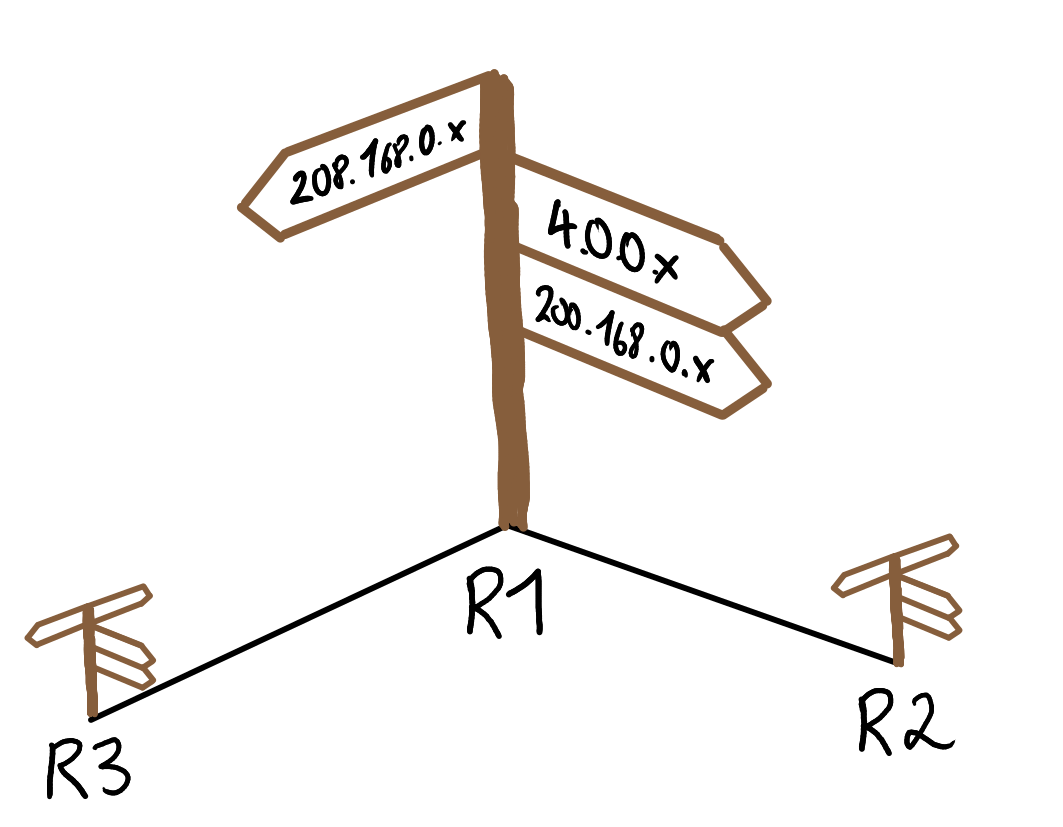 208.168.0.x
4.0.0.x
200.168.0.x
R1
R2
R3